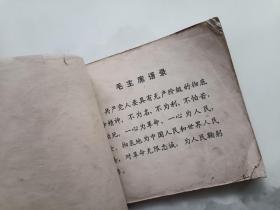 毛主席语录
共产党人要具有无产阶级的彻底
精神，不为名，不为利，不怕苦，
怕死，一心为革命，一心为人民，
彻底地为中国人民和世界人民
，对革命无限忠诚，为人民鞠躬